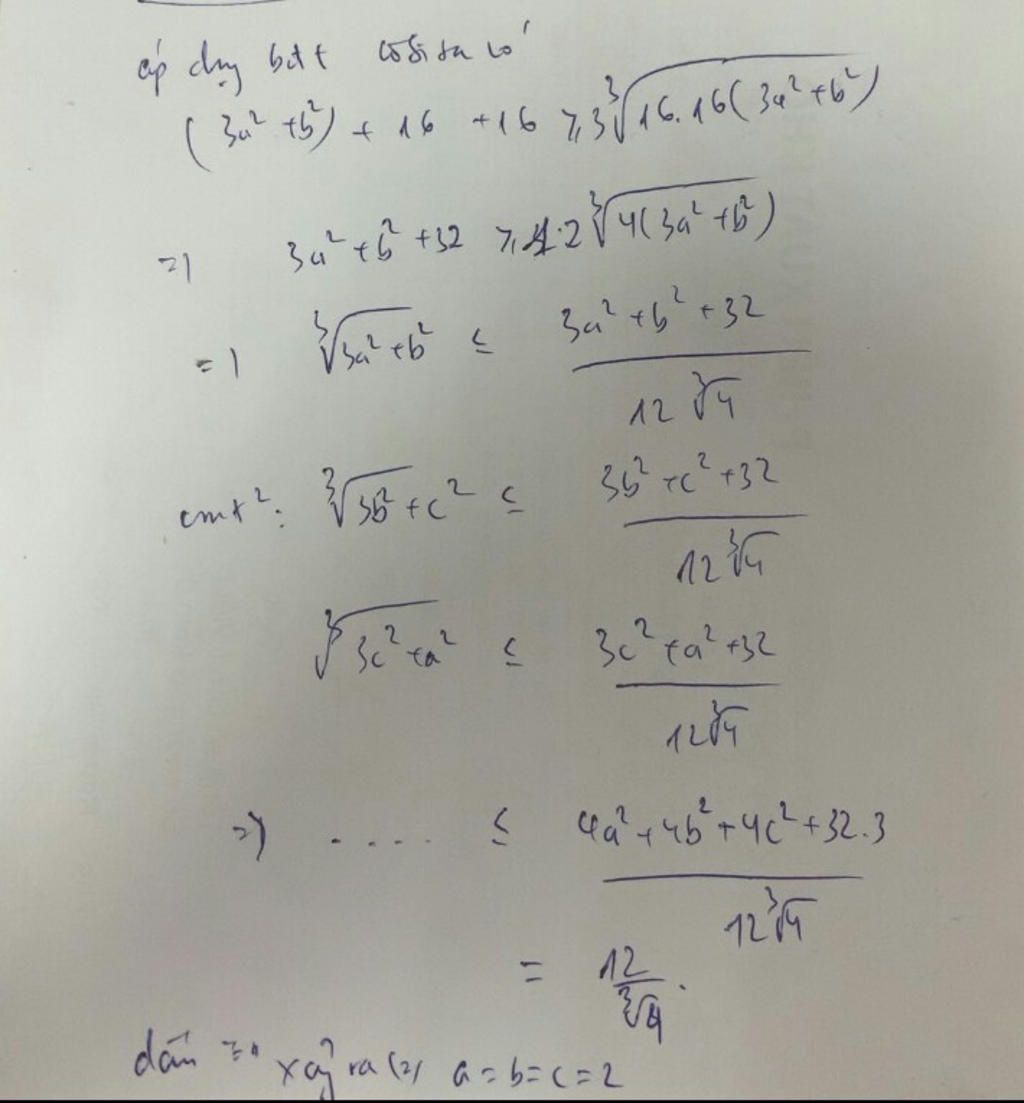 áp dụng bđt côsi ta có
(3a² + b²) + 16 + 16 ≥ 3∛(16.16(3a² + b²))
=) 3a² + b² + 32 ≥ 12∛(4(3a² + b²))
=) ∛(3a² + b²) ≤ (3a² + b² + 32)/(12∛4)
cmt²: ∛(3b² + c²) ≤ (3b² + c² + 32)/(12∛4)
∛(3c² + a²) ≤ (3c² + a² + 32)/(12∛4)
=) ..... ≤ (4a² + 4b² + 4c² + 32.3)/(12∛4)
= 12/∛4.
dấu "=" xảy ra (=) a = b = c = 2